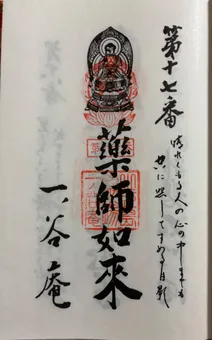 第十七番
晴れくもる人の心の中までも
空に照してすめる月影
藥師如來
一ノ谷庵